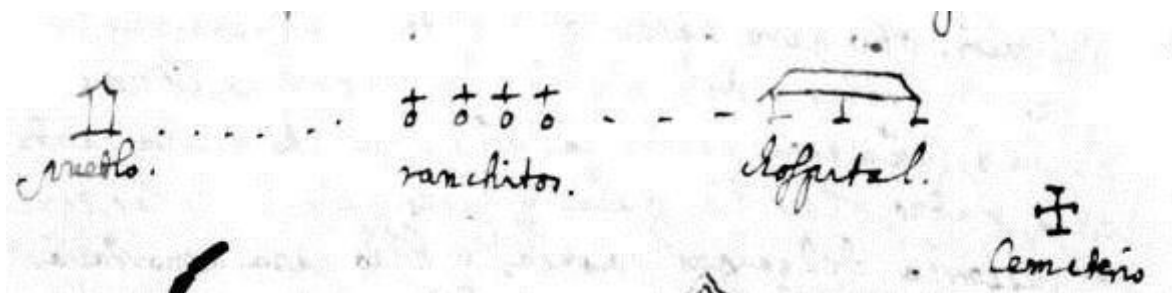 pueblo.
ranchitos.
Hospital.
Cemiterio